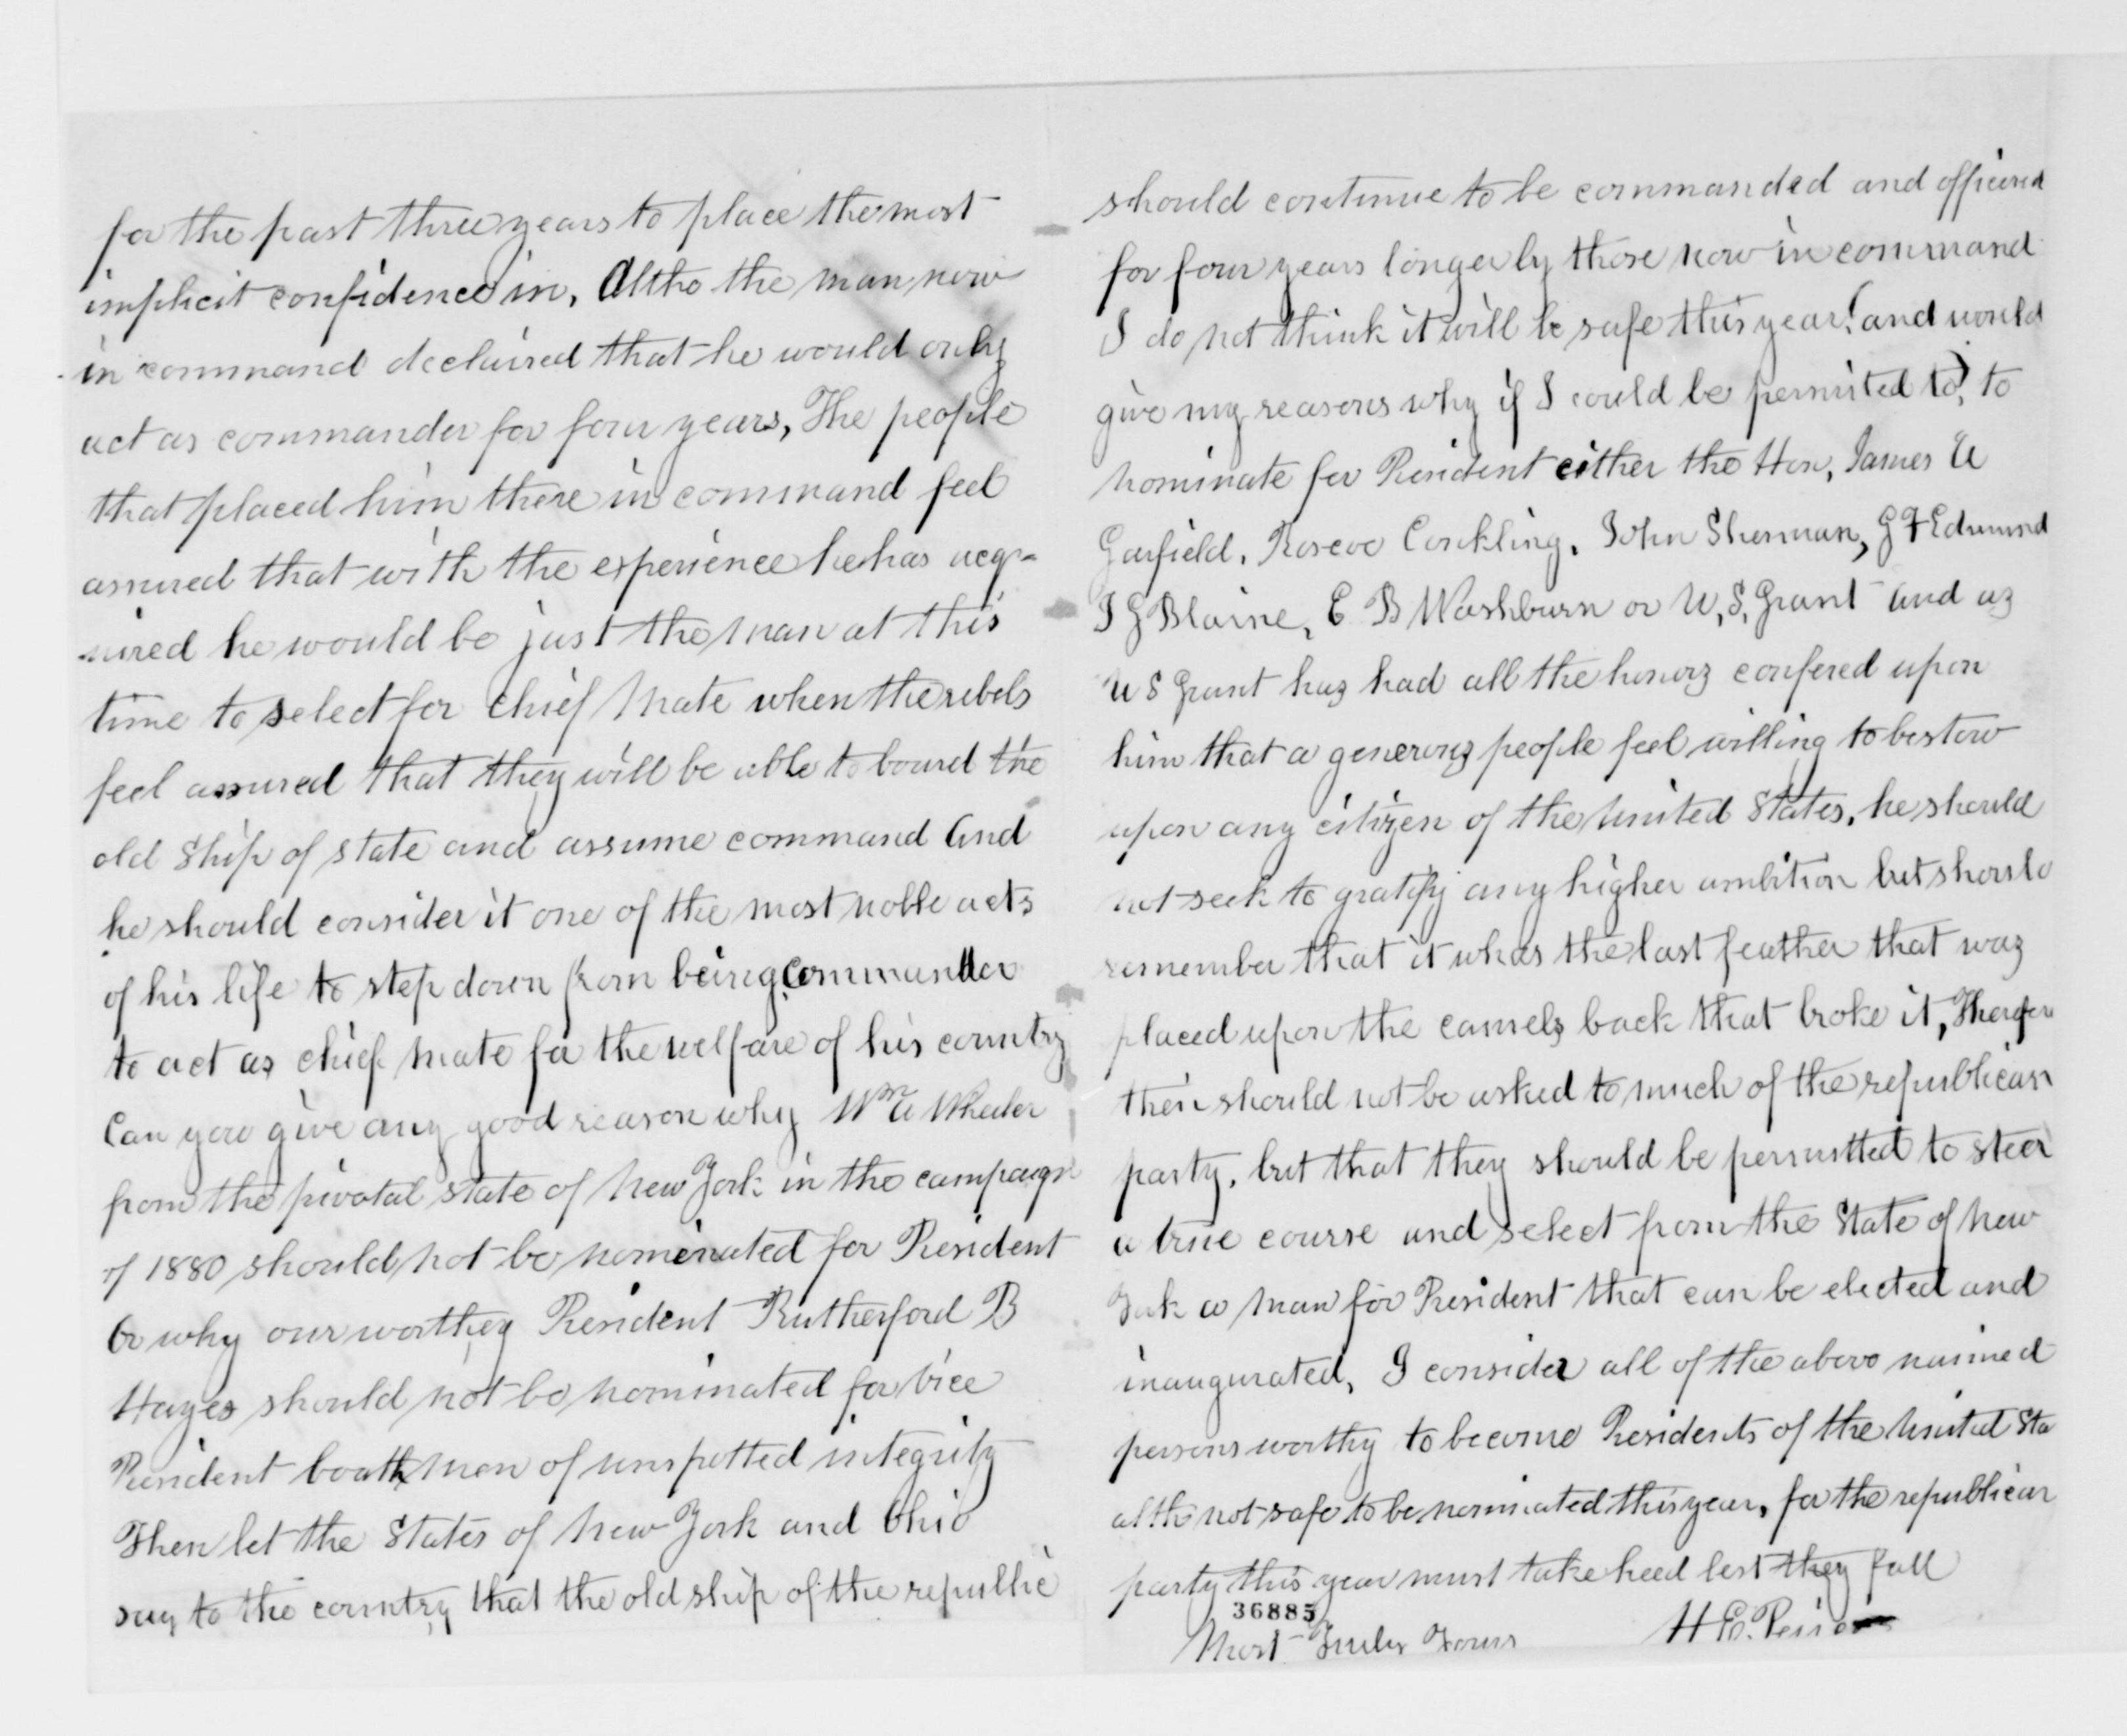 for the past three years to place the most
implicit confidence in, Altho the man now
in command declaired that he would only
act as commander for four years, The people
that placed him there in command feel
assured that with the experience he has acq-
-uired he would be just the man at this
time to select for chief Mate when the rebels
feel assured that they will be able to bourd the
old Ship of state and assume command And
he should consider it one of the most noble acts
of his life to step down from being Commander
to act as chief Mate for the welfare of his country
Can you give any good reason why Wm A Wheeler
from the pivotal state of New York in the campaign
of 1880 should not be nominated for President
Or why our worthey President Rutherford B
Hayes should not be nominated for vice
President boath Men of unspotted integrity
Then let the States of New York and Ohio
say to the country that the old ship of the republic
should continue to be commanded and officered
for four years longer by those now in command
I do not think it will be safe this year (and would
give my reasons why if I could be permited to), to
nominate for President either the Hon, James A
Garfield, Roscoe Conkling, John Sherman, G F Edmund
J G Blaine, E B Washburn or U, S, Grant And as
U S Grant has had all the honors confered upon
him that a generous people feel willing to bestow
upon any citizen of the United States, he should
not seek to gratify any higher ambition but should
remember that it whas the last feather that was
placed upon the camels back that broke it, Therefor
their should not be asked to much of the republican
party, but that they should be permitted to steer
a true course and select from the State of New
York a Man for President that can be elected and
inaugurated, I consider all of the above naimed
persons worthy to become Presidents of the United Sta
altho not safe to be nominated this year, for the republican
party this year must take heed lest they fall
36885
Most Truly Yours H E.